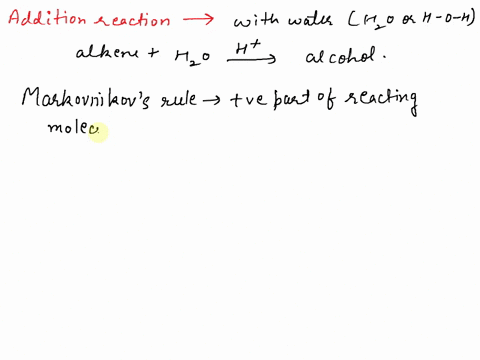 Addition reaction → with water (H₂O or H-O-H)
alkene + H₂O —H⁺→ alcohol.
Markovnikov's rule → +ve part of reacting
molec